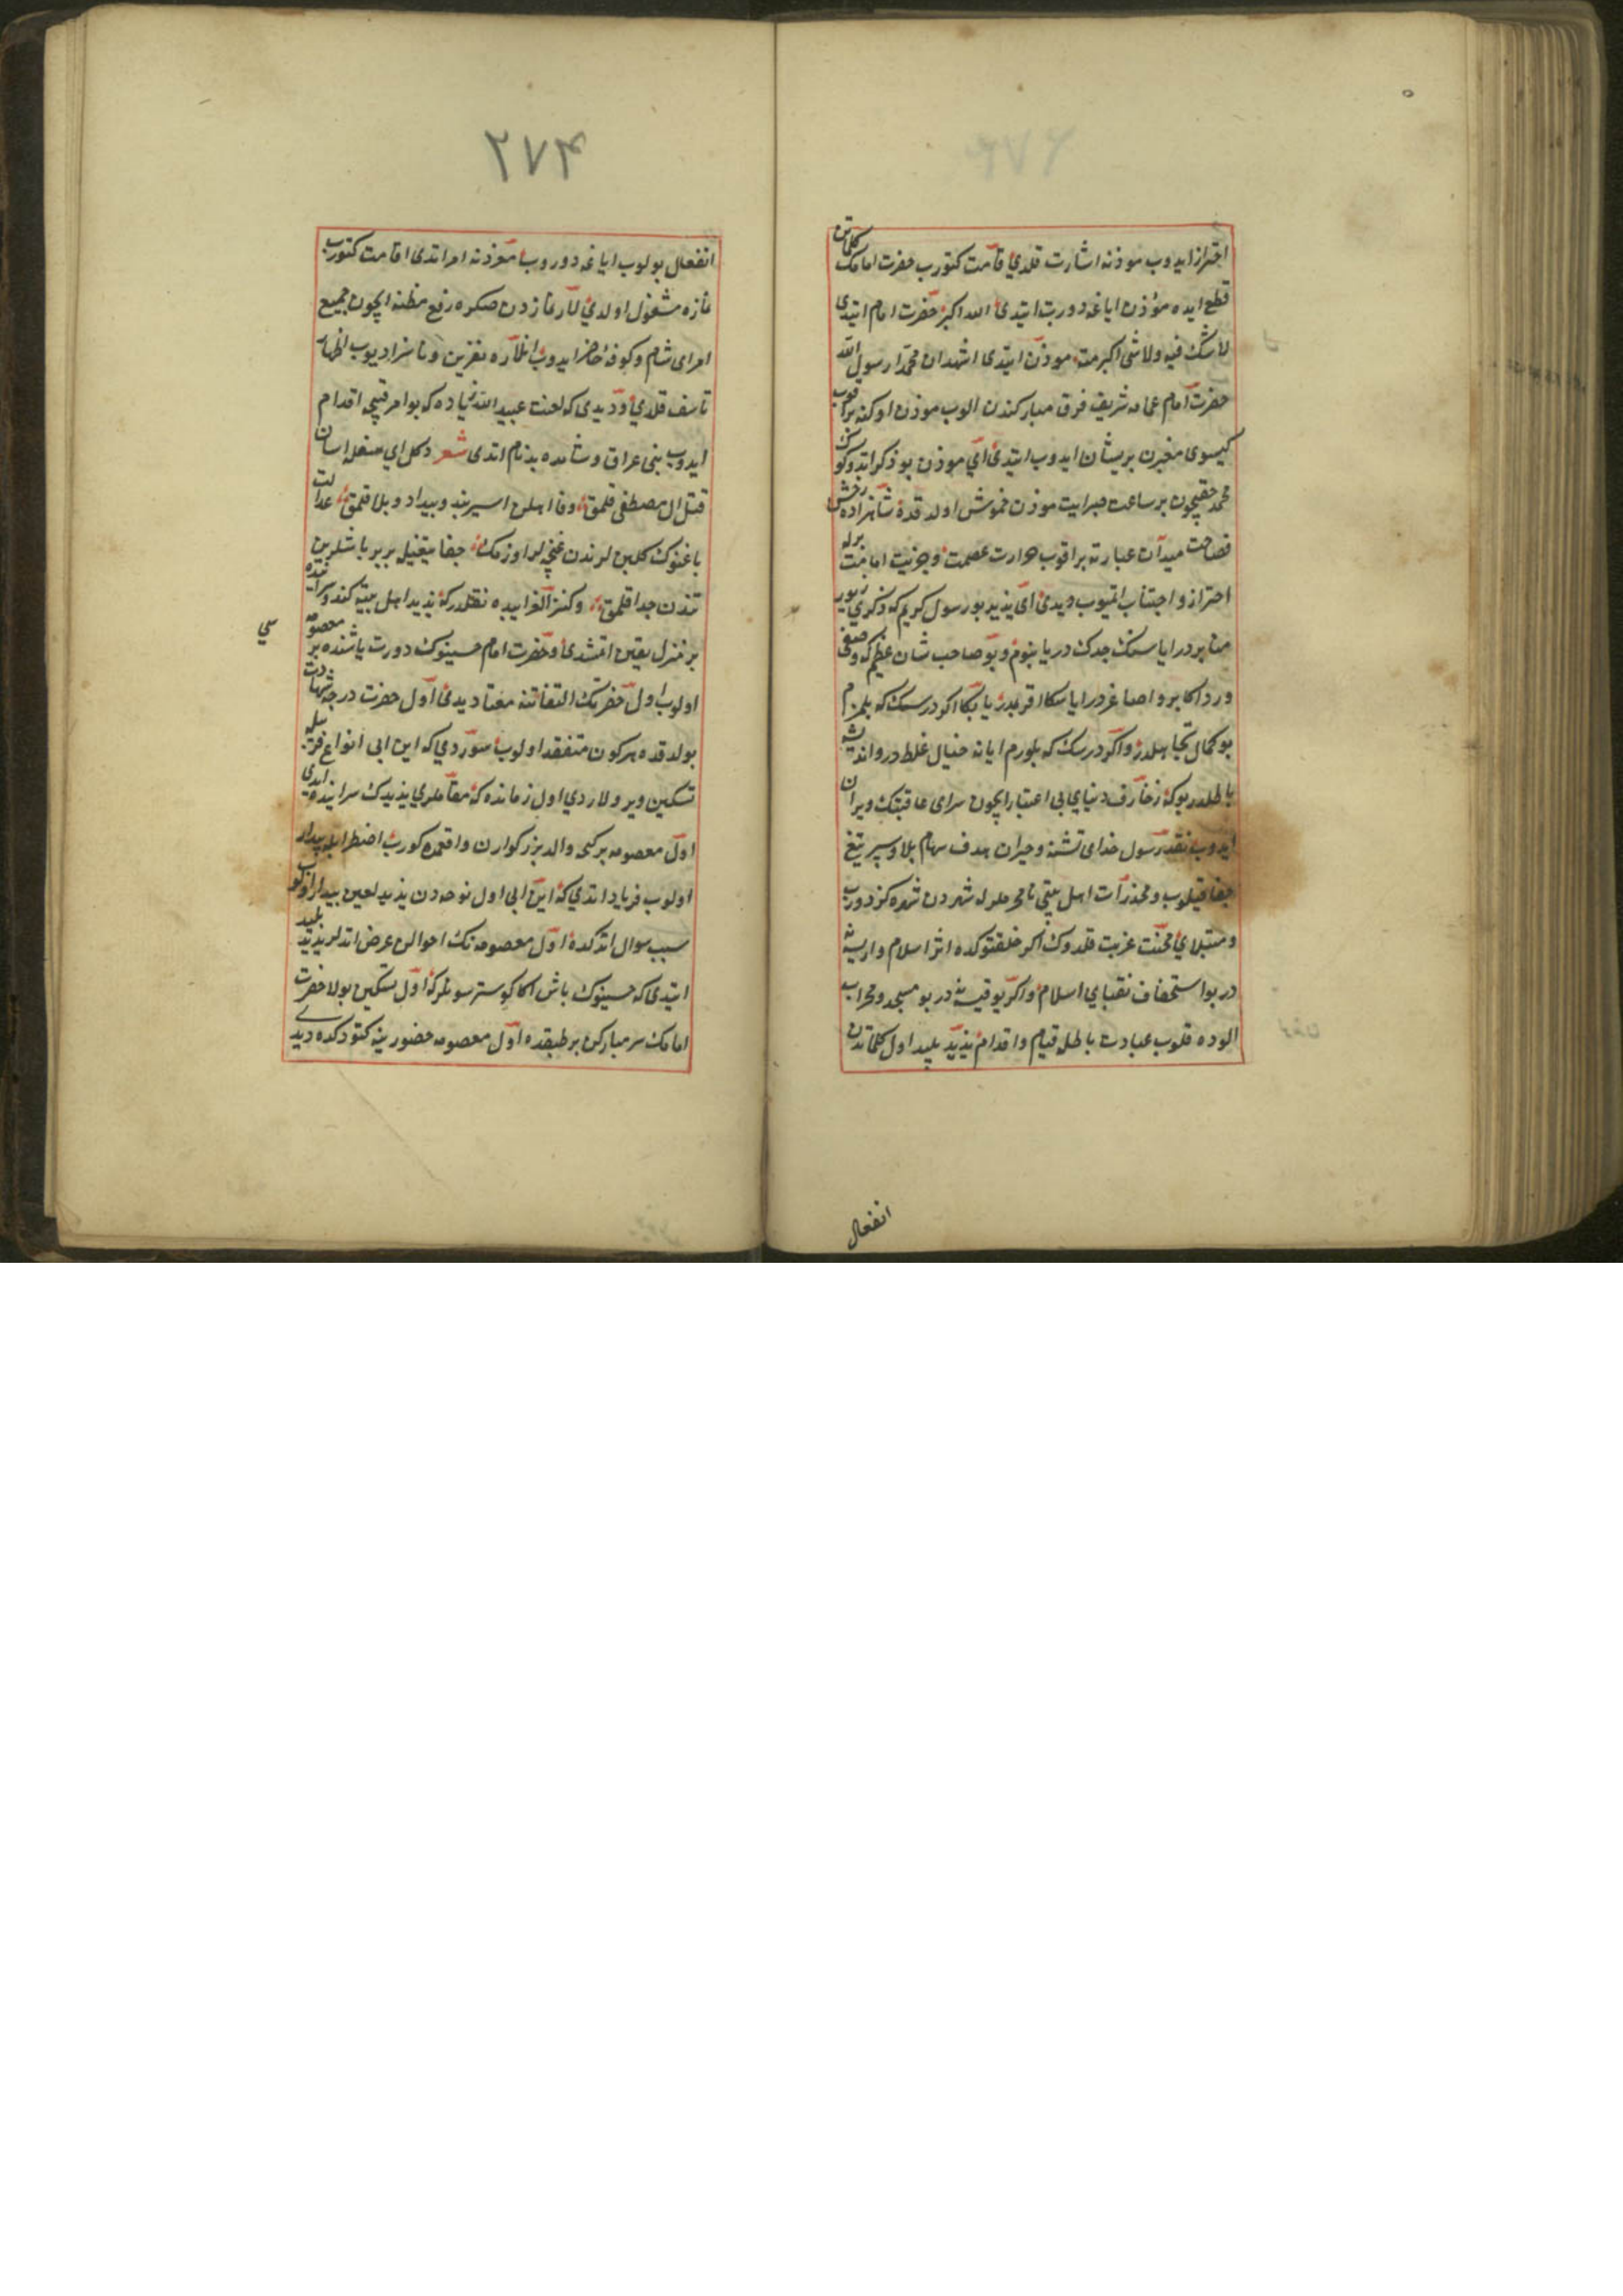 احتراز ایدوب موذنه اشارت قلدی قامت کتورب حضرت امامک کلماتن
قطع ایده موذن ایاغه دورب ایتدی الله اکبر حضرت امام ایتدی
لا شک فیه ولا شی اکبر منه موذن ایتدی اشهد ان محمدا رسول الله
حضرت امام عمامه شریف فرق مبارکندن الوب موذن اوکنه براقوب
کیسوی پریشان ایدوب ایتدی ای موذن بو ذکر اتدوکوک
محمد حقیچون بر ساعت صبر ایت موذن خموش اولدقده شاهزاده رخش
فصاحت میدان عبارته براقوب
احتراز و اجتناب ایتیوب دیدی ای یزید بو رسول کریم که ذکری زیور
منابر در ایا سنک جدک در یا بنوم و بو صاحب شان عظیم که وصفی
ورد اکابر و اصاغر در ایا سکا اقربدر یا بکا اکر درسک که بلمزم
بو کمال تجاهلدر و اکر درسک که بلورم ایا نه خیال غلط در و اندیشه
باطلدر بو که زخارف دنیای بی اعتبار ایچون سرای عاقبتک ویران
ایدوب نقد رسول خدای تشنه و حیران هدف سهام بلا و سپر تیغ
جفا قیلوب و مخدرات اهل بیتی نامحرملرله شهردن شهره کزدورب
و مبتلای محنت غربت قلدوک اکر خلقتوکده اثر اسلام وار بس نه
در بو استخفاف نقبای اسلام و اکر یوقیسه نه در بو مسجد و محراب
الوده قلوب عبادت باطله قیام و اقدام یزید پلید اول کلماتدن
انفعال
۲۷۴
انفعال بولوب ایاغه دوروب موذنه امر اتدی اقامت کتورب
نمازه مشغول اولدی لار نمازدن صکره رفع مظنه ایچون جمیع
امرای شام و کوفه حاضر ایدوب انلاره نفرین و ناسزا دیوب اظهار
تاسف قلدی و دیدی که لعنت عبید الله زیاده که بو امر قبیحه اقدام
ایدوب بنی عراق و شامده بدنام اتدی شعر دکل ای سفله اسان
قتل ال مصطفی قلمق وفا اهلن اسیر بند و بیداد و بلا قلمق عدالت
باغنوک کلبن لرندن غنچه لر اوزمک جفا تیغیله بر بر باشلرین
تندن جدا قلمق و کنز الغرایبده نقلدر که یزید اهل بیته کندو سراینده
بر منزل یقین اتمشدی و حضرت امام حسینوک دورت یاشنده بر معصومه
سی
اولوب اول حضرتک التفاتنه معتاد یدی اول حضرت درجه شهادت
بولدقده هر کون متفقد اولوب سورردی که این ابی انواع فریبله
تسکین ویرولاردی اول زمانده که مقاملری یزیدک سراینده ایدی
اول معصومه بر کجه والد بزرکوارن واقعه ده کورب اضطرابله بیدار
اولوب فریاد اتدی که این ابی اول نوحه دن یزید لعین بیدار اولوب
سبب سوال اتدکده اول معصومه نک احوالن عرض اتدلر یزید پلید
ایتدی که حسینوک باش اکا کوسترسونلر که اول تسکین بولا حضرت
امامک سر مبارکن بر طبقده اول معصومه حضورینه کتوردکده دیدی